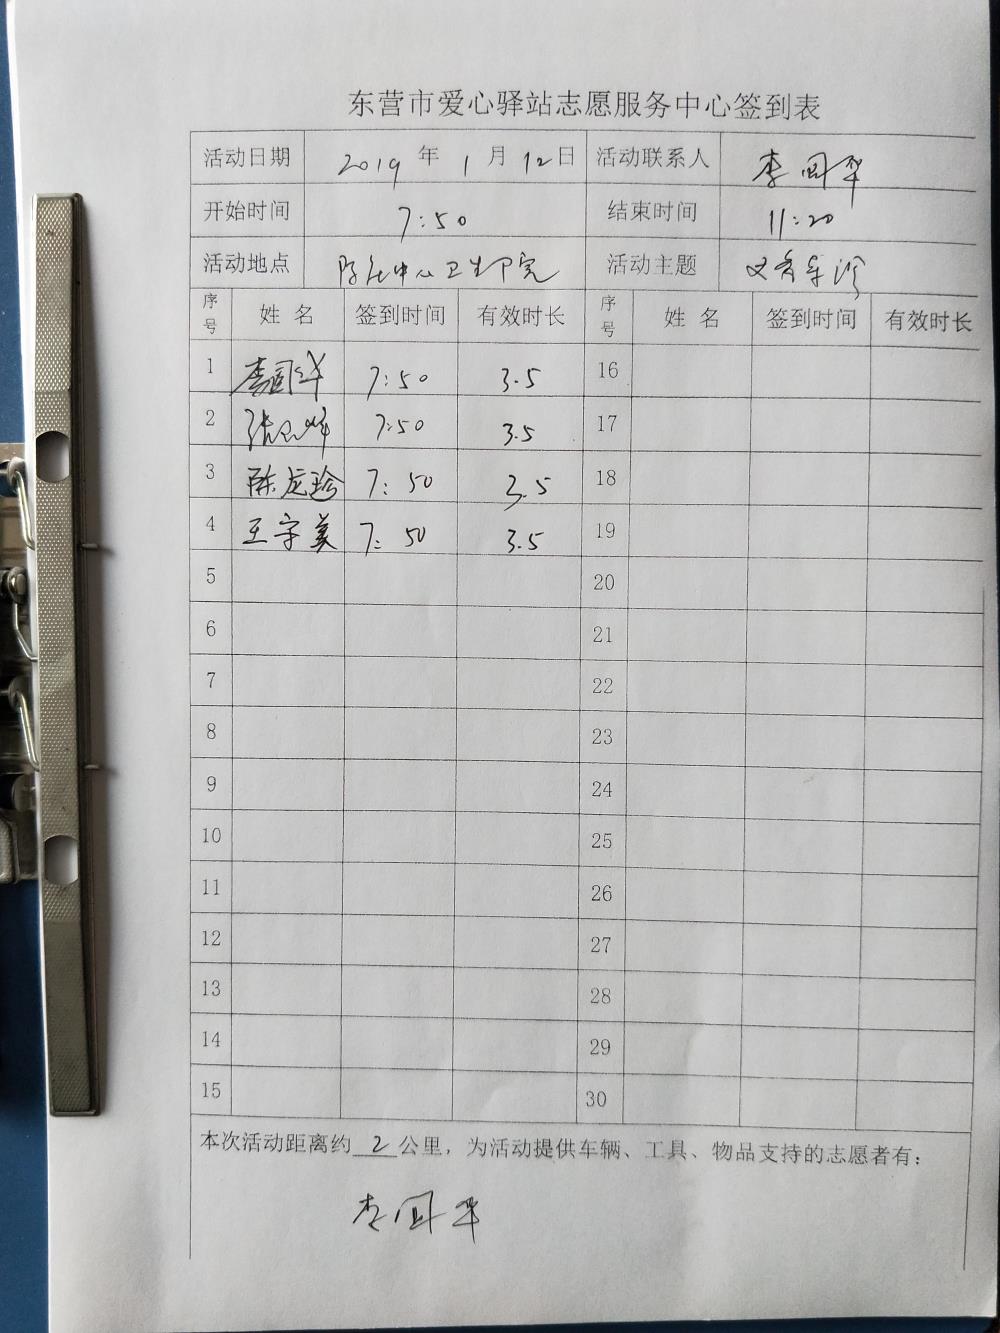 东营市爱心驿站志愿服务中心签到表
活动日期 2019 年 1 月 12 日 活动联系人 李国华
开始时间 7:50 结束时间 11:20
活动地点 中心卫生院 活动主题
序号 姓名 签到时间 有效时长 序号 姓名 签到时间 有效时长
1 李国华 7:50 3.5 16
2 张 7:50 3.5 17
3 陈龙珍 7:50 3.5 18
4 王字美 7:50 3.5 19
5 20
6 21
7 22
8 23
9 24
10 25
11 26
12 27
13 28
14 29
15 30
本次活动距离约 2 公里，为活动提供车辆、工具、物品支持的志愿者有：
李国华